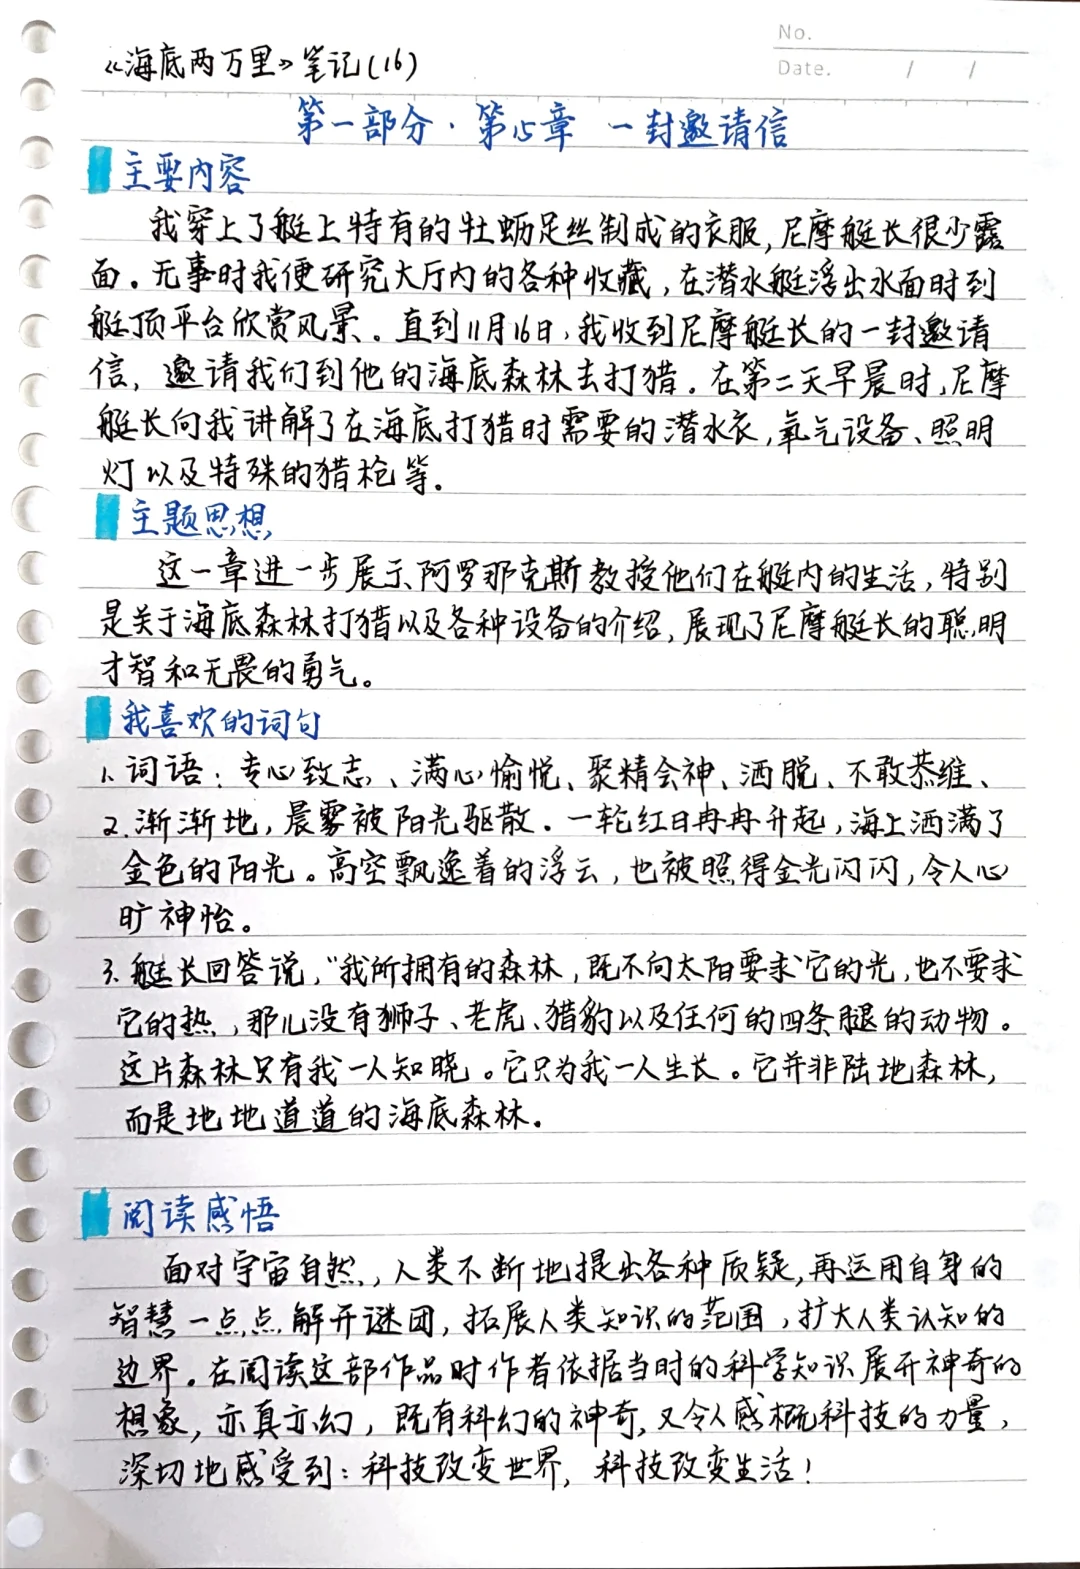 No.
《海底两万里》笔记(16)
Date. / /
第一部分·第15章 一封邀请信
主要内容
我穿上了艇上特有的牡蛎足丝制成的衣服,尼摩艇长很少露
面。无事时我便研究大厅内的各种收藏,在潜水艇浮出水面时到
艇顶平台欣赏风景。直到11月16日,我收到尼摩艇长的一封邀请
信,邀请我们到他的海底森林去打猎。在第二天早晨时,尼摩
艇长向我讲解了在海底打猎时需要的潜水衣,氧气设备、照明
灯以及特殊的猎枪等.
主题思想
这一章进一步展示阿罗那克斯教授他们在艇内的生活,特别
是关于海底森林打猎以及各种设备的介绍,展现了尼摩艇长的聪明
才智和无畏的勇气。
我喜欢的词句
1.词语:专心致志、满心愉悦、聚精会神、洒脱、不敢恭维、
2.渐渐地,晨雾被阳光驱散.一轮红日冉冉升起,海上洒满了
金色的阳光。高空飘逸着的浮云,也被照得金光闪闪,令人心
旷神怡。
3.艇长回答说,“我所拥有的森林,既不向太阳要求它的光,也不要求
它的热,那儿没有狮子、老虎、猎豹以及任何的四条腿的动物。
这片森林只有我一人知晓。它只为我一人生长。它并非陆地森林,
而是地地道道的海底森林.
阅读感悟
面对宇宙自然,人类不断地提出各种质疑,再运用自身的
智慧一点点解开谜团,拓展人类知识的范围,扩大人类认知的
边界.在阅读这部作品时作者依据当时的科学知识展开神奇的
想象,亦真亦幻,既有科幻的神奇,又令人感概科技的力量,
深切地感受到:科技改变世界,科技改变生活!